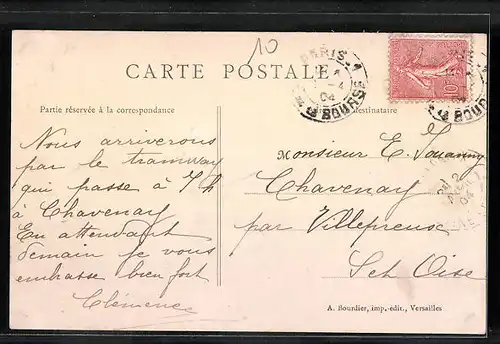 10
CARTE POSTALE
Partie réservée à la correspondance
destinataire
PARIS
BOURSE
10
BOURSE
Nous arriverons
par le tramway
qui passe à 7h
à Chavenay
En attendant
demain je vous
embrasse bien fort
Clémence
Monsieur E.
Chavenay
par Villepreux
Set Oise
A. Bourdier, imp.-édit., Versailles